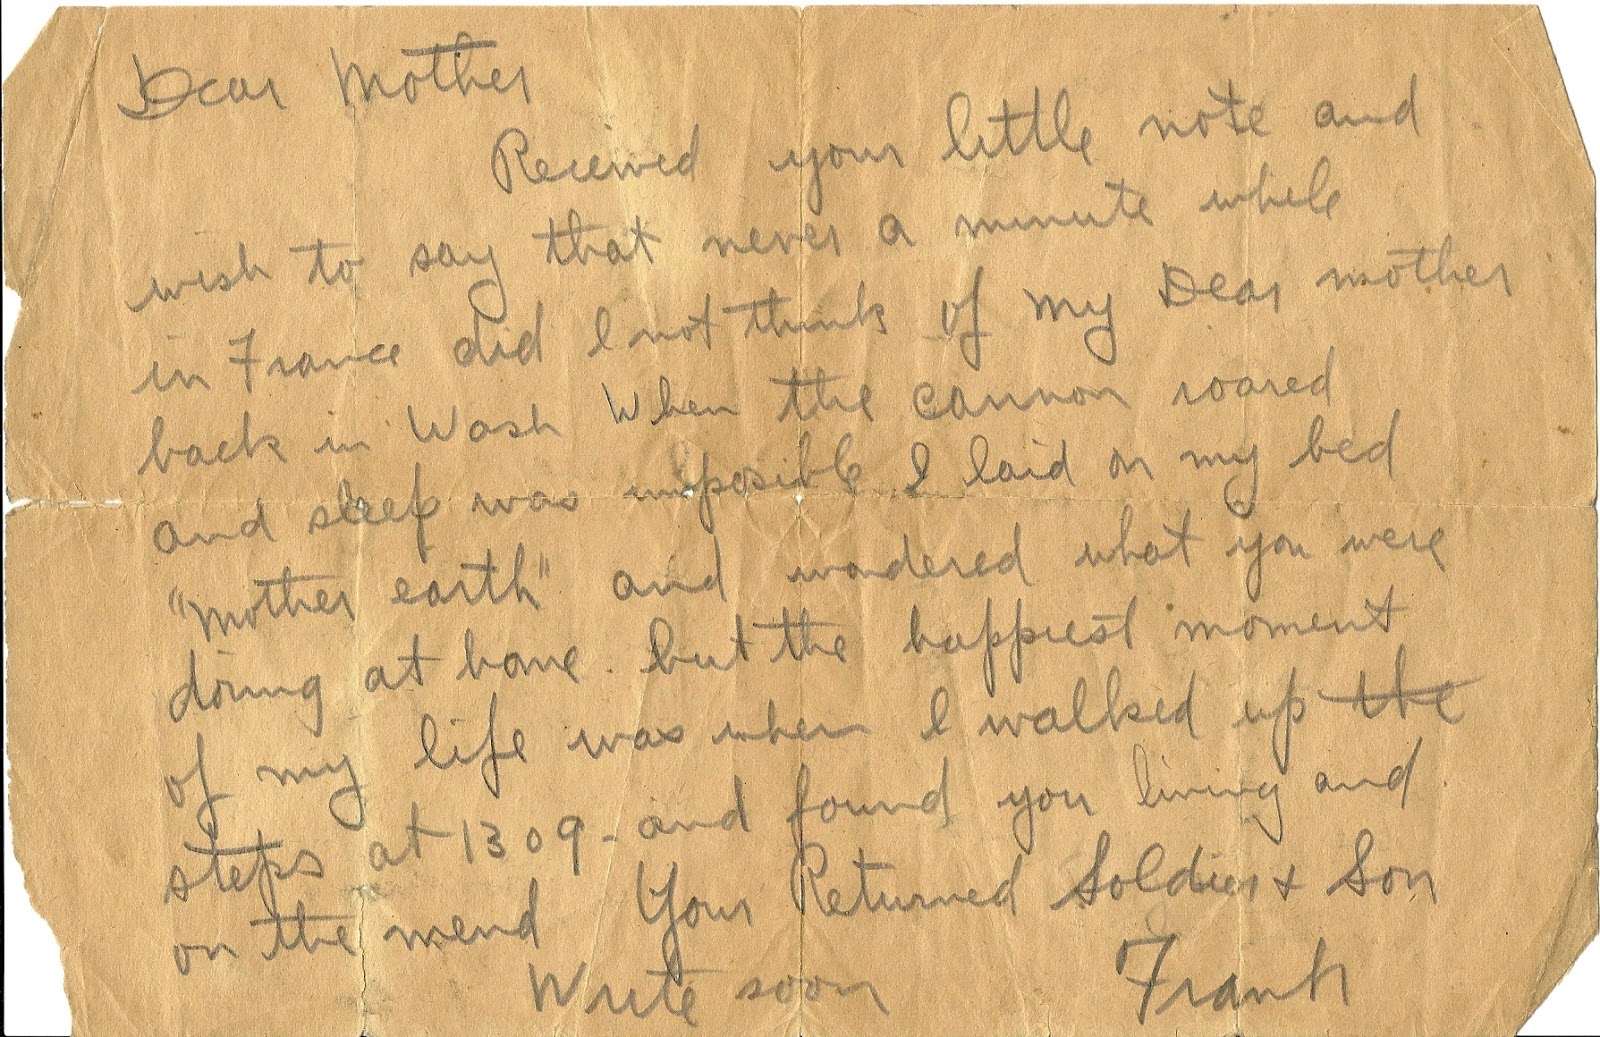 Dear Mother
Received your little note and
wish to say that never a minute while
in France did I not think of my Dear mother
back in Wash When the cannon roared
and sleep was imposible I laid on my bed
"Mother earth" and wondered what you were
doing at home. but the happiest moment
of my life was when I walked up the
steps at 1309 - and found you living and
on the mend Your Returned Soldier & Son
Write soon Frank